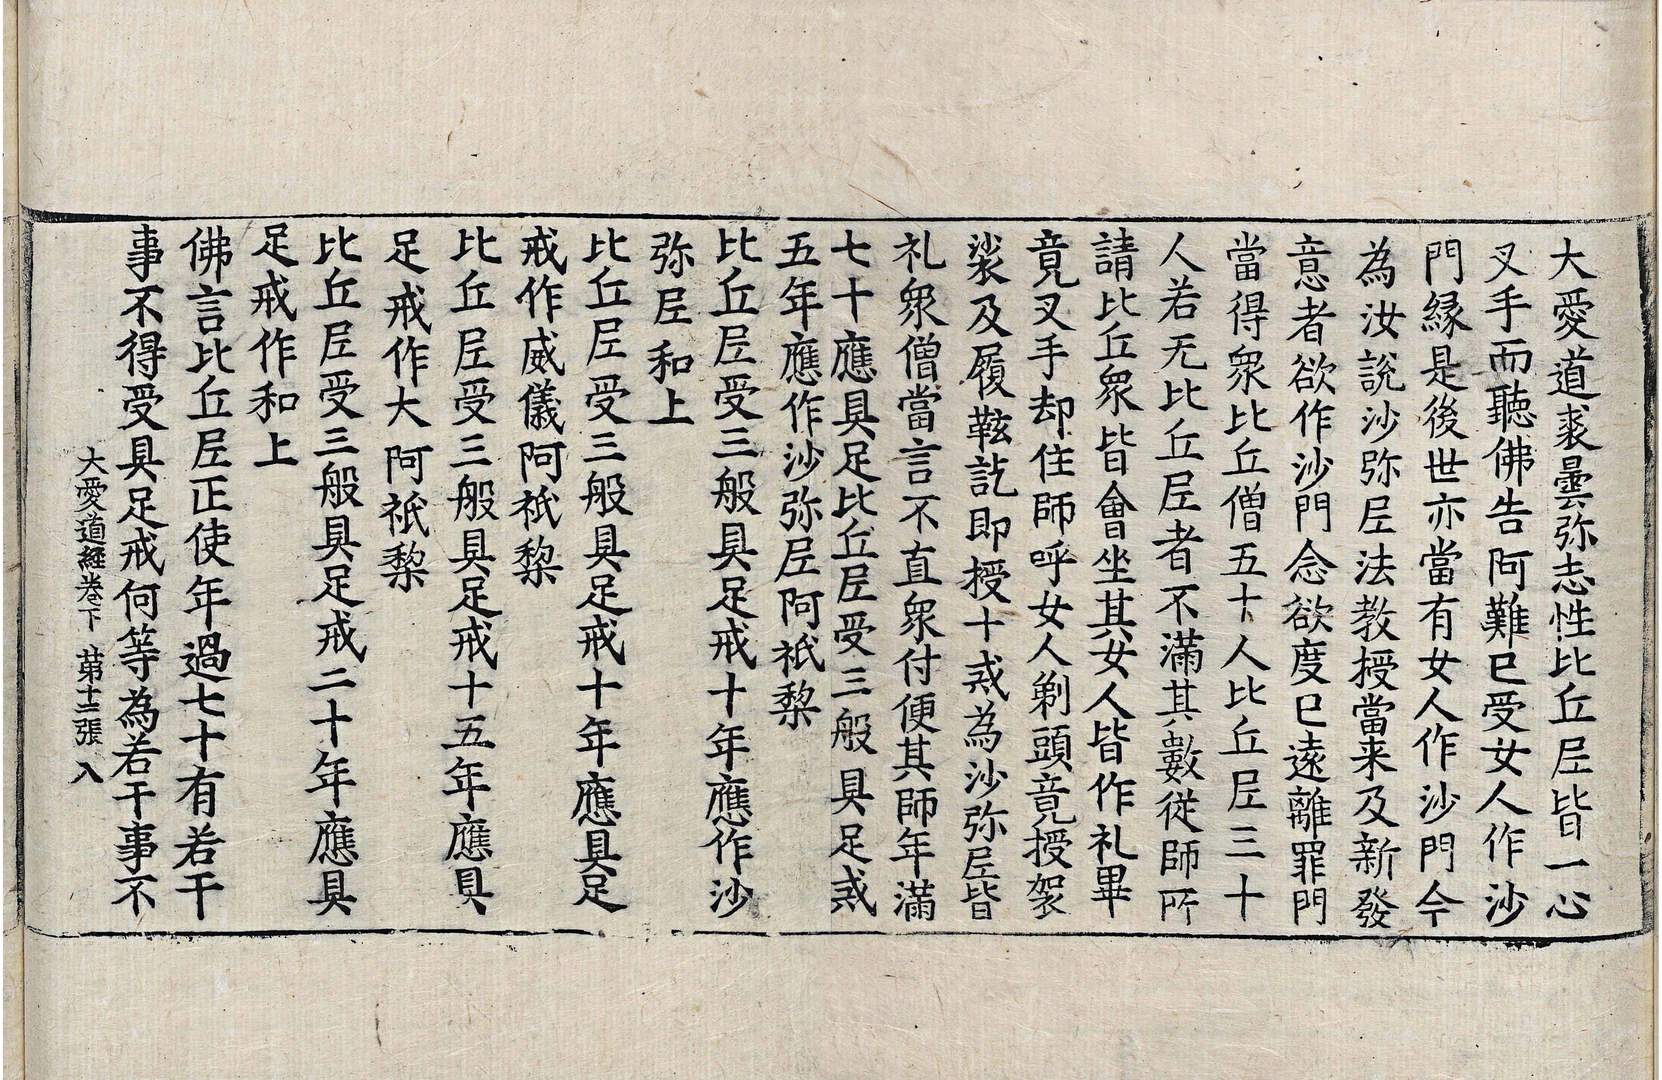 大愛道裘曇弥志性比丘𡰱皆一心
叉手而聽佛告阿難已受女人作沙
門縁是後世亦當有女人作沙門今
為汝說沙弥𡰱法教授當来及新發
意者欲作沙門念欲度已遠離罪門
當得衆比丘僧五十人比丘𡰱三十
人若无比丘𡰱者不滿其數從師所
請比丘衆皆會坐其女人皆作礼畢
竟叉手却住師呼女人剃頭竟授袈
裟及履鞋訖即授十戒為沙弥𡰱皆
礼衆僧當言不直衆付便其師年滿
七十應具足比丘𡰱受三般具足戒
五年應作沙弥𡰱阿祇棃
比丘𡰱受三般具足戒十年應作沙
弥𡰱和上
比丘𡰱受三般具足戒十年應具足
戒作威儀阿祇棃
比丘𡰱受三般具足戒十五年應具
足戒作大阿祇棃
比丘𡰱受三般具足戒二十年應具
足戒作和上
佛言比丘𡰱正使年過七十有若干
事不得受具足戒何等為若干事不
大愛道經卷下 苐十二張 入